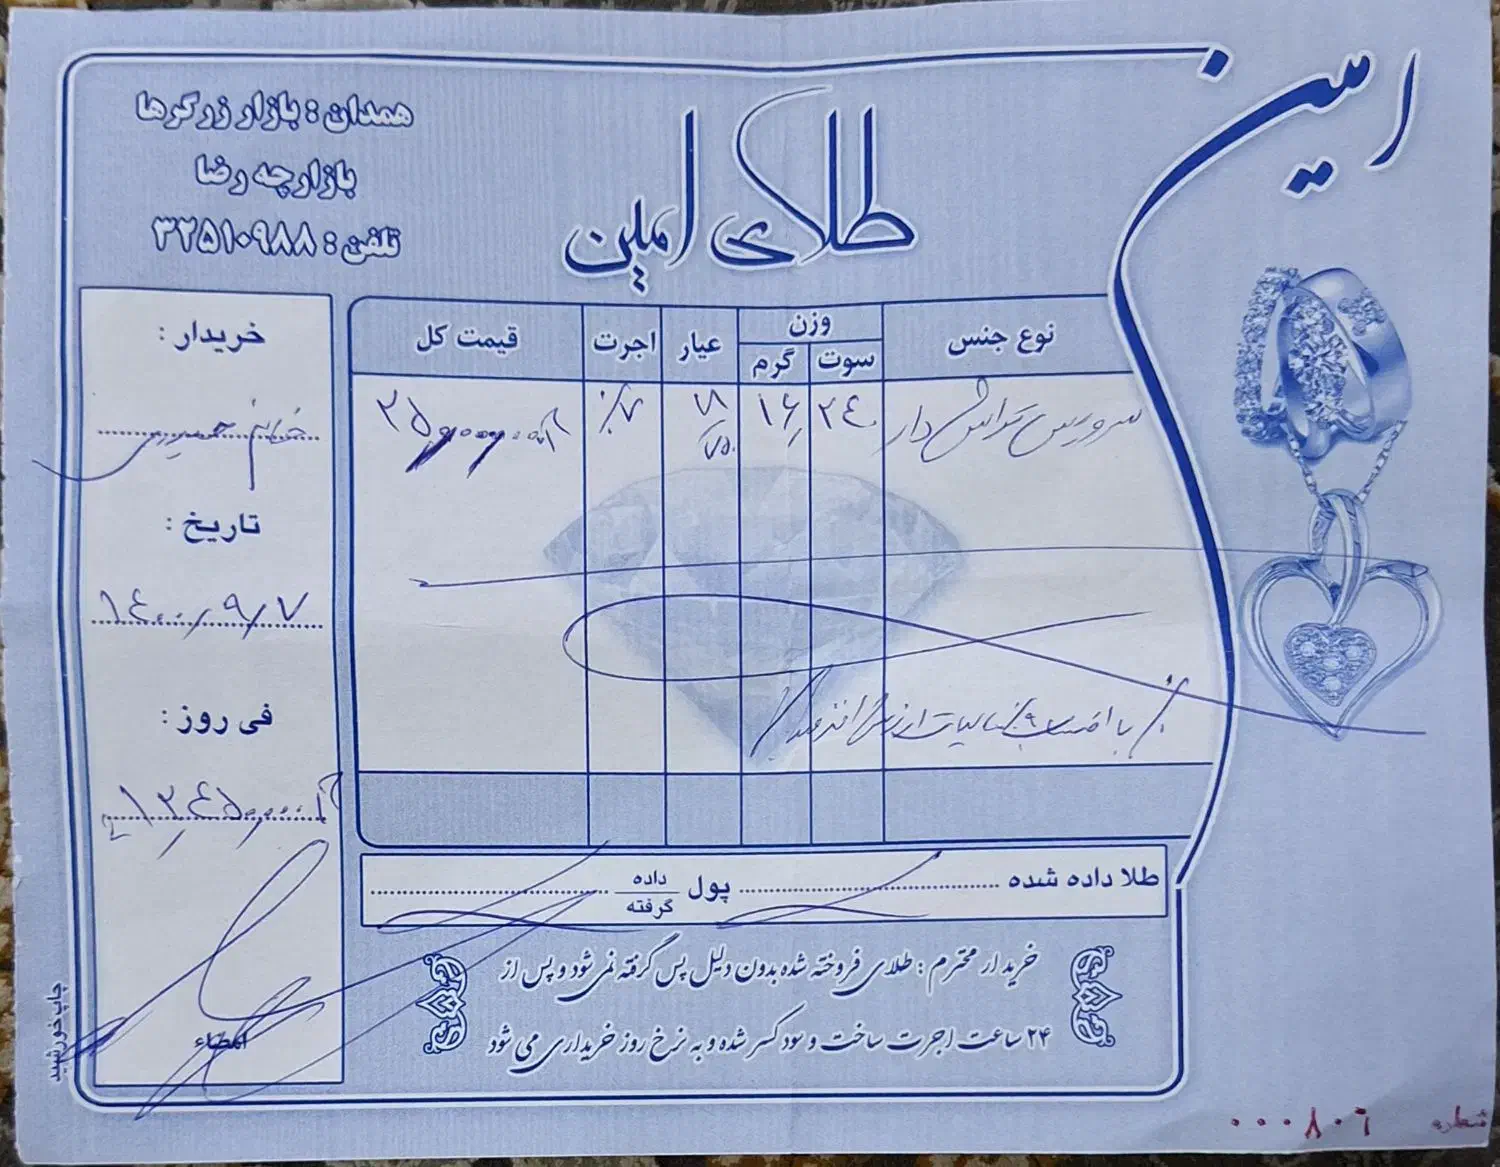 امین
طلای امین
همدان : بازار زرگرها
بازارچه رضا
تلفن : ۳۲۵۱۰۹۸۸
نوع جنس
وزن
سوت
گرم
عیار
اجرت
قیمت کل
سرویس تراش دار
۲۴۰
۱۶
۱۸
۷۵۰
۷٪
خریدار :
خانم
تاریخ :
۱۴۰۰/۹/۷
فی روز :
با احتساب ۹٪ مالیات ارزش افزوده
طلا داده شده
پول
داده
گرفته
خریدار محترم : طلای فروخته شده بدون دلیل پس گرفته نمی شود و پس از
۲۴ ساعت اجرت ساخت و سود کسر شده و به نرخ روز خریداری می شود
امضاء
چاپ خورشید
شماره